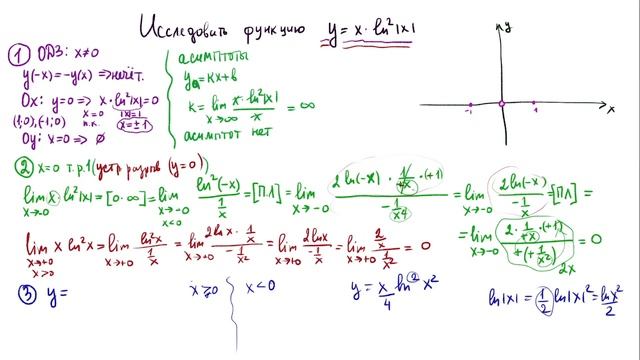 Исследовать функцию y = x · ln²|x|
① ОДЗ: x≠0
y(-x) = -y(x) ⇒ нечёт.
Ox: y=0 ⇒ x · ln²|x| = 0
x=0 |x|=1
(1;0), (-1;0) п.к. x=±1
Oy: x=0 ⇒ ∅
асимптоты
y = kx+b
k = lim x→∞ x·ln²|x| / x = ∞
асимптот нет
y
-1 1 x
② x=0 т.р.1 (устр разрыв (y=0))
lim x→-0 x ln²|x| = [0·∞] = lim x→-0 x<0 ln²(-x) / (1/x) = [ПЛ] = lim x→-0 2 ln(-x) · 1/+x · (+1) / (-1/x²) = lim x→-0 2 ln(-x) / (-1/x) = [ПЛ] =
= lim x→-0 2 · 1/+x · (+1) / (+(+1/x²)) = 0
2x
lim x→+0 x>0 x ln²x = lim x→+0 ln²x / (1/x) = lim x→+0 2lnx · 1/x / (-1/x²) = lim x→+0 2lnx / (-1/x) = lim x→+0 (2/x) / (1/x²) = 0
③ y =
x>0 x<0
y = x/4 ln² x²
ln|x| = 1/2 ln|x|² = lnx²/2